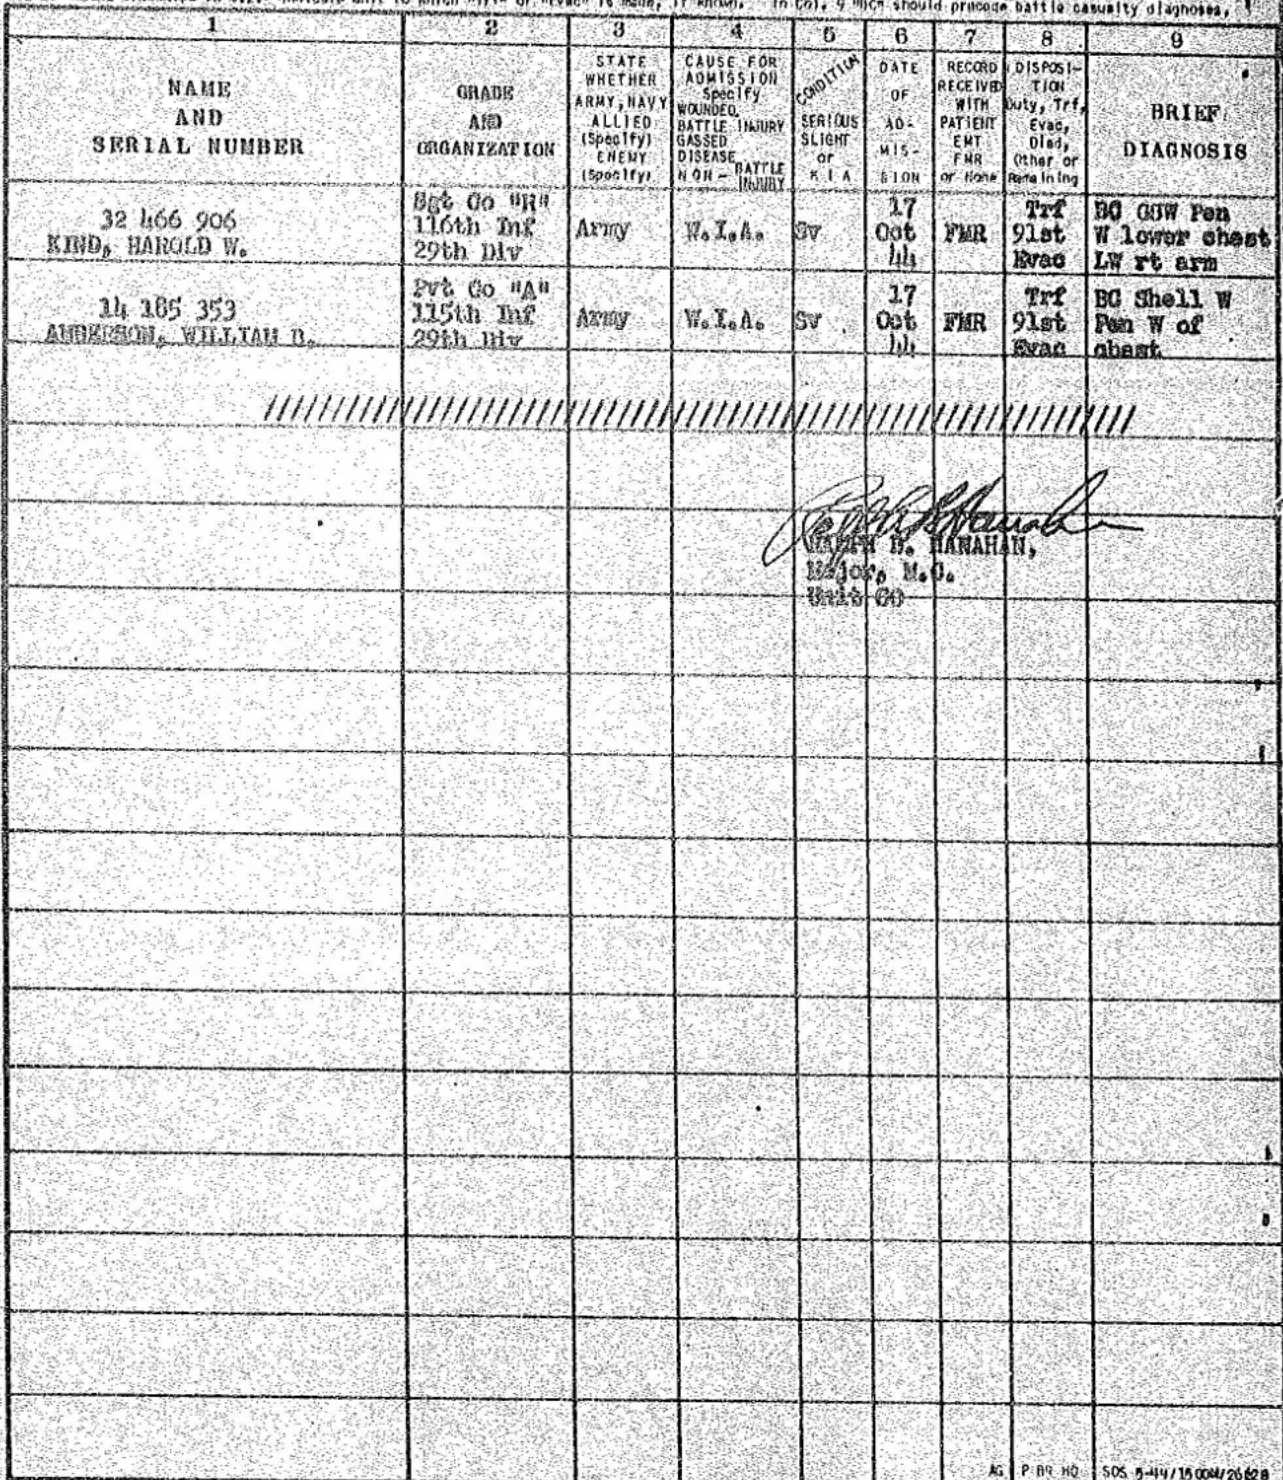 to which or "Evac" is made, if known. In Col. 9 should precede battle casualty diagnoses.
1 2 3 4 5 6 7 8 9
NAME
AND
SERIAL NUMBER
GRADE
AND
ORGANIZATION
STATE
WHETHER
ARMY, NAVY
ALLIED
(Specify)
ENEMY
(Specify)
CAUSE FOR
ADMISSION
Specify
WOUNDED
BATTLE INJURY
GASSED
DISEASE
NON-BATTLE
INJURY
CONDITION
SERIOUS
SLIGHT
or
K I A
DATE
OF
AD-
MIS-
SION
RECORD
RECEIVED
WITH
PATIENT
EMT
FMR
or None
DISPOSI-
TION
Duty, Trf,
Evac,
Died,
Other or
Remaining
BRIEF
DIAGNOSIS
32 466 906
KIND, HAROLD W.
Sgt Co
116th Inf
29th Div
Army
W.I.A.
Sv
17
Oct
44
FMR
Trf
91st
Evac
BC GSW Pen
W lower chest
LW rt arm
14 185 353
ANDERSON, WILLIAM
Pvt Co "A"
115th Inf
29th Div
Army
W.I.A.
Sv
17
Oct
44
FMR
Trf
91st
Evac
BC Shell W
Pen W of
chest
HANAHAN,
Major, M.C.
Unit CO
AG P HQ SOS